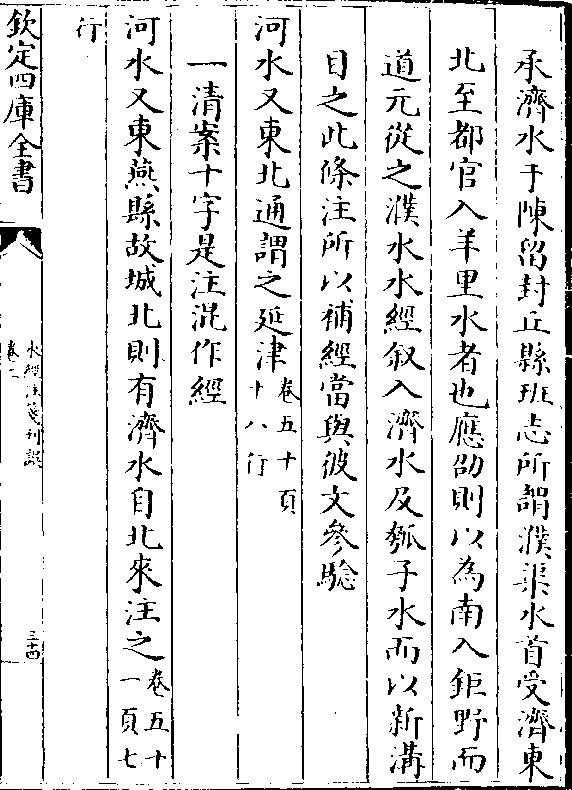 承濟水于陳留封丘縣班志所謂濮渠水首受濟東
北至都官入羊里水者也應劭則以為南入鉅野而
道元從之濮水水經叙入濟水及瓠子水而以新溝
目之此條注所以補經當與彼文參騐
河水又東北通謂之延津卷五十頁十八行
一清案十字是注混作經
河水又東燕縣故城北則有濟水自北來注之卷五十一頁七
行
欽定四庫全書
水經注箋刊誤
卷二
三十四